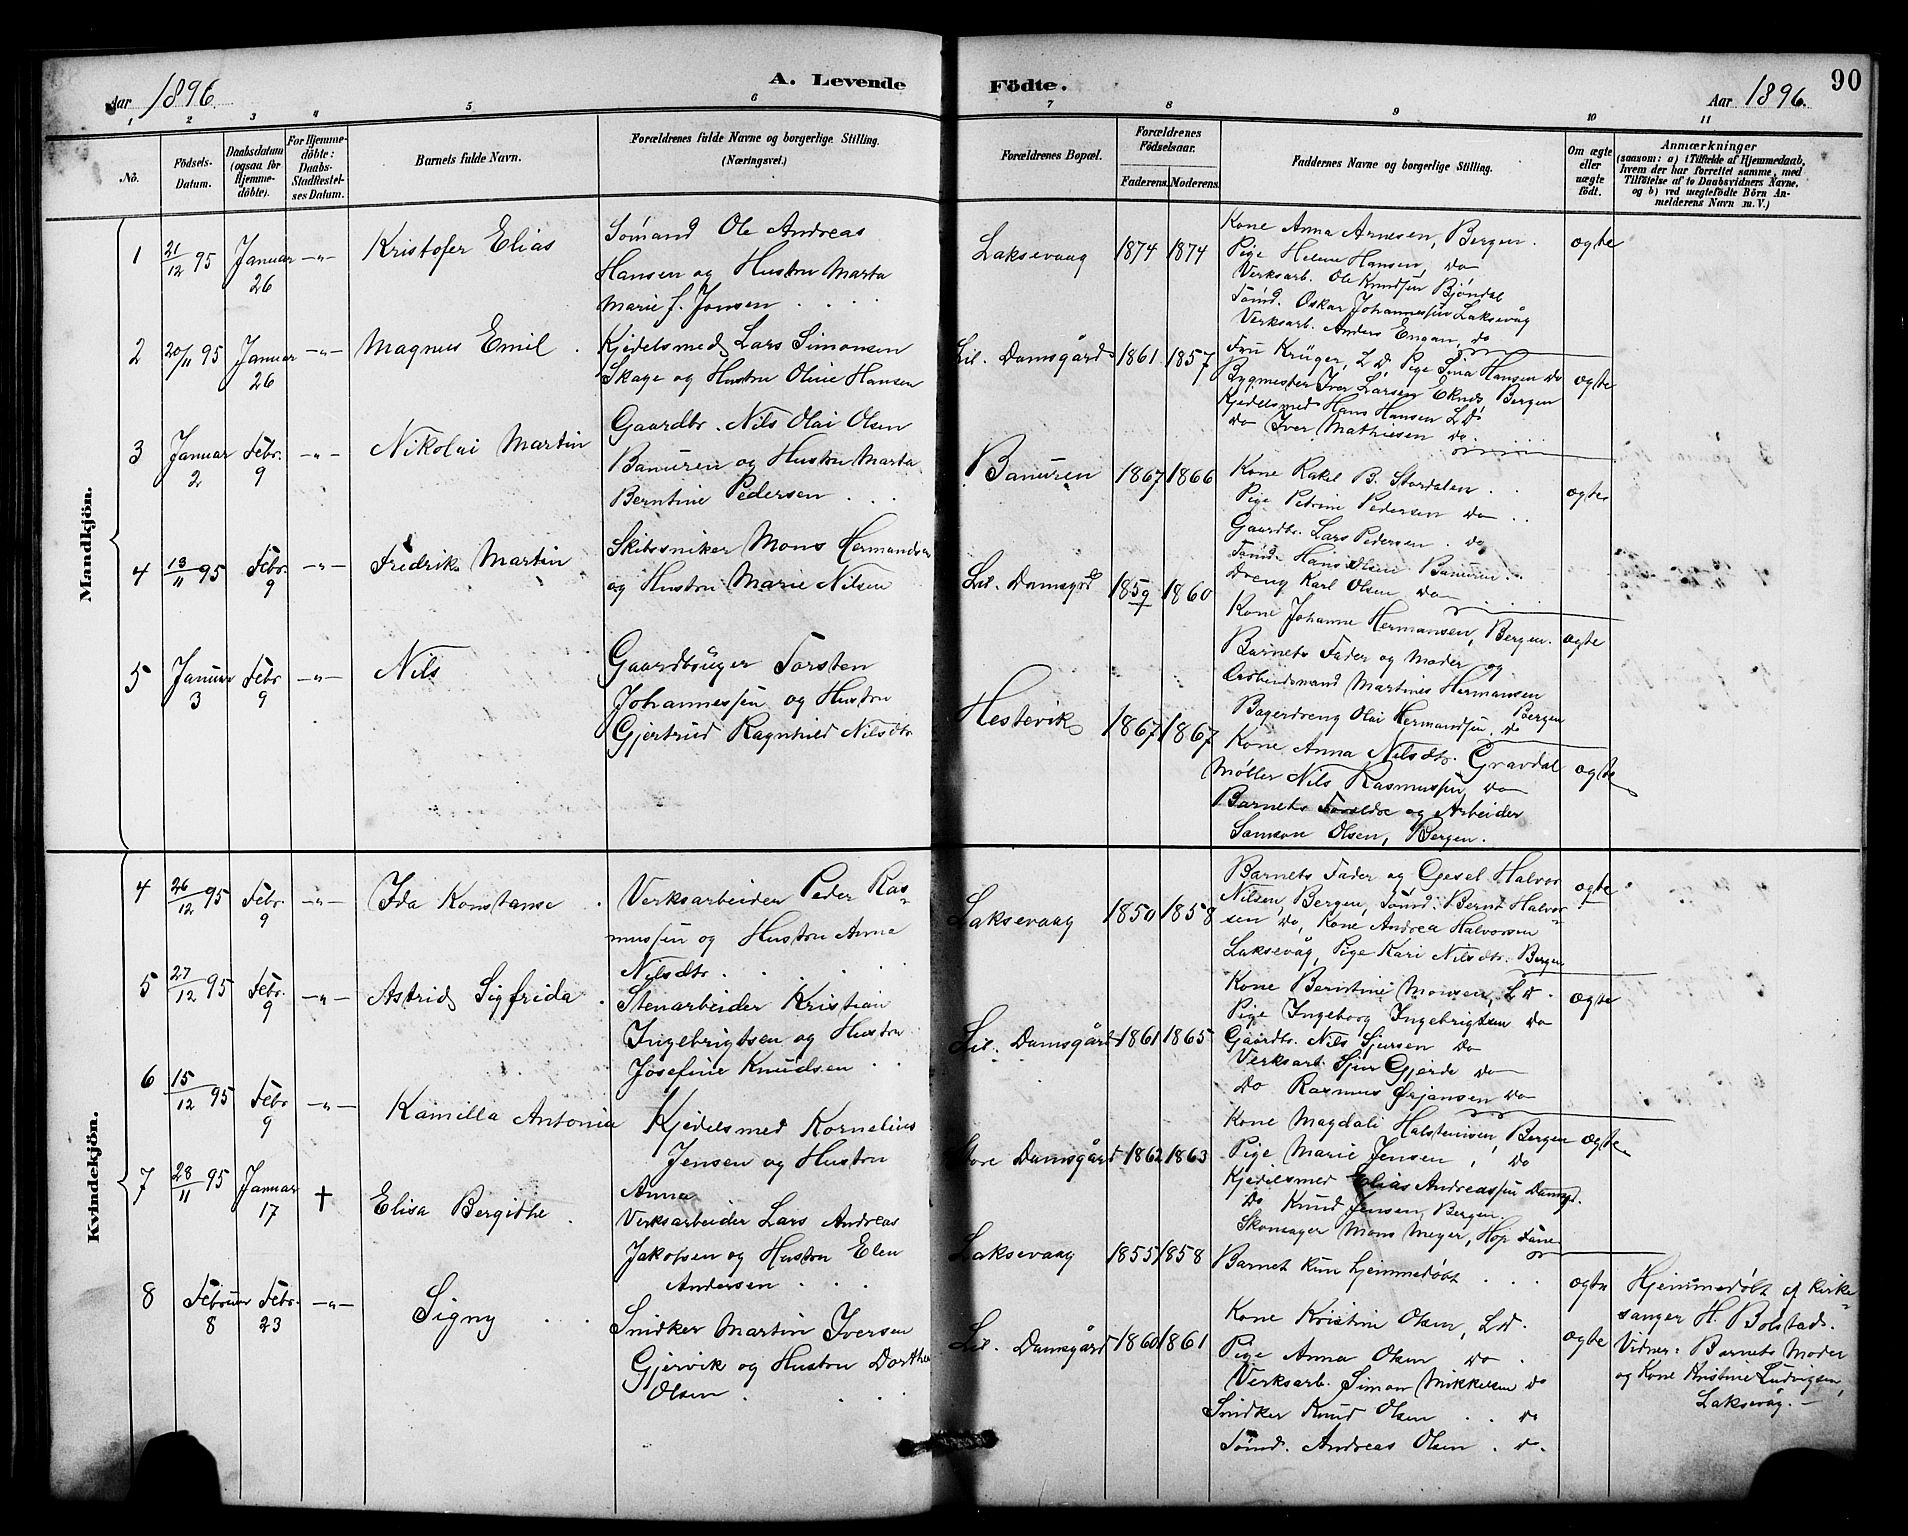 Aar 1896.
A. Levende
Födte.
Aar 1896.
90
1 2 3 4 5 6 7 8 9 10 11
No.
Födsels-
Datum.
Daabsdatum
(ogsaa for
Hjemme-
döbte).
For Hjemme-
döbte:
Daabs-
Stadfæstel-
ses Datum.
Barnets fulde Navn.
Forældrenes fulde Navne og borgerlige Stilling.
(Næringsvei.)
Forældrenes Bopæl.
Forældrenes
Födselsaar.
Faderens. Moderens.
Faddernes Navne og borgerlige Stilling.
Om ægte
eller
uægte
födt.
Anmærkninger
(saasom: a) i Tilfælde af Hjemmedaab,
hvem der har forrettet samme, med
Tilföielse af to Daabsvidners Navne,
og b) ved uægtefödte Börn An-
melderens Navn m. V.)
Mandkjön.
1 21/12 95 Januar 26 -"- Kristofer Elias
Sömand Ole Andreas
Hansen og Hustru Marta
Marie f. Jonsen
Laksevaag 1874 1874
Kone Anna Arnesen, Bergen.
Pige Helene Hansen, do
Verksarb. Ole Knudsen Bjöndal
Sömd. Oskar Johannessen Laksevåg
Verksarb. Anders Engan, do
ægte
2 20/11 95 Januar 26 -"- Magnus Emil
Kjedelsmed Lars Simonsen
Skage og Hustru Oline Hansen
Lil. Damsgård 1861 1857
Fru Krüger, L.D, Pige Sina Hansen do
Bygmester Iver Larsen Eknes Bergen
Kjedelsmed Hans Hansen L.D
do Iver Mathiesen do
ægte
3 Januar 2 Febr. 9 -"- Nikolai Martin
Gaardbr. Nils Olai Olsen
Banuren og Hustru Marta
Berntine Pedersen
Banuren 1867 1866
Kone Rakel B. Stordalen
Pige Petrine Pedersen do
Gaardbr. Lars Pedersen do
Sömd. Hans Olsen Banuren
Dreng Karl Olsen do
ægte
4 13/11 95 Febr. 9 -"- Fredrik Martin
Skibssniker Mons Hermandsen
og Hustru Marie Nilsen
Lil. Damsgrd 1859 1860
Kone Johanne Hermansen, Bergen.
Barnets Fader og Moder og
Arbeidsmand Martines Hermansen
Bergen
Bagerdreng Olai Hermandsen, do
ægte
5 Januar 3 Febr 9 -"- Nils
Gaardbruger Torsten
Johannessen og Hustru
Gjertrud Ragnhild Nilsdtr
Hestevik 1867 1867
Kone Anna Nilsdtr. Gravdal
Møller Nils Rasmussen do
Barnets Foreldre og Arbeider
Samson Olsen, Bergen.
ægte
Kvindekjön.
4 26/12 95 Febr. 9 -"- Ida Konstanse
Verksarbeider Peder Ras-
mussen og Hustru Anna
Nilsdtr.
Laksevaag 1850 1858
Barnets Fader og Gesel Halvor
Nilsen, Bergen, Sömd. Bernt Halvor-
sen do, Kone Andrea Halvorsen
Laksevåg, Pige Kari Nilsdtr. Bergen
ægte
5 27/12 95 Febr. 9 -"- Astrid Sigfrida
Stenarbeider Kristian
Ingebrigtsen og Hustru
Josefine Knudsen
Lil. Damsgård 1861 1865
Kone Berntine Monsen, L.D.
Pige Ingeborg Ingebrigtsen do
Gaardbr. Nils Sjursen do
Verksarb. Sjur Gjerde do
do Rasmus Ørjansen do
ægte
6 15/12 95 Febr 9 -"- Kamilla Antonia
Kjedelsmed Kornelius
Jensen og Hustru
Anna
Store Damsgård 1862 1863
Kone Magdali Halstensen, Bergen
Pige Marie Jensen, do
Kjedelsmed Elias Andreassen Damsgd.
do Knud Jensen, Bergen.
Skomager Mons Meyer, Hop Fane
ægte
7 28/11 95 Januar 17 † Elisa Bergithe
Verksarbeider Lars Andreas
Jakobsen og Hustru Elen
Andersen
Laksevaag 1855 1858
Barnet kun hjemmedøbt
ægte
Hjemmedøbt af Kirke-
sanger H. Bolstad.
Vidner: Barnets Moder
og Kone Kristine Ludvigsen,
Laksevåg.
8 Februar 8 Febr. 23 -"- Signy
Snidker Martin Iversen
Gjervik og Hustru Dorthea
Olsen
Lil. Damsgård 1860 1861
Kone Kristine Olsen, L.D.
Pige Anna Olsen do
Verksarb. Simon Mikkelsen do
Snidker Knud Olsen do
Sömd. Andreas Olsen do.
ægte